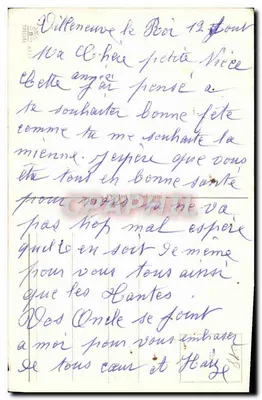 Villeneuve le Roi 12 Aout
Ma Chère petite Nièce
Cette année j'ai pensé a
te souhaiter bonne fête
comme tu me souhaite la
mienne. J'espère que vous
êtes tous en bonne santé
pour nous ne va
pas trop mal espère
quil en soit de même
pour vous tous ainsi
que les Tantes.
Vos Oncle se joint
a moi pour vous embrasser
de tous cœur et